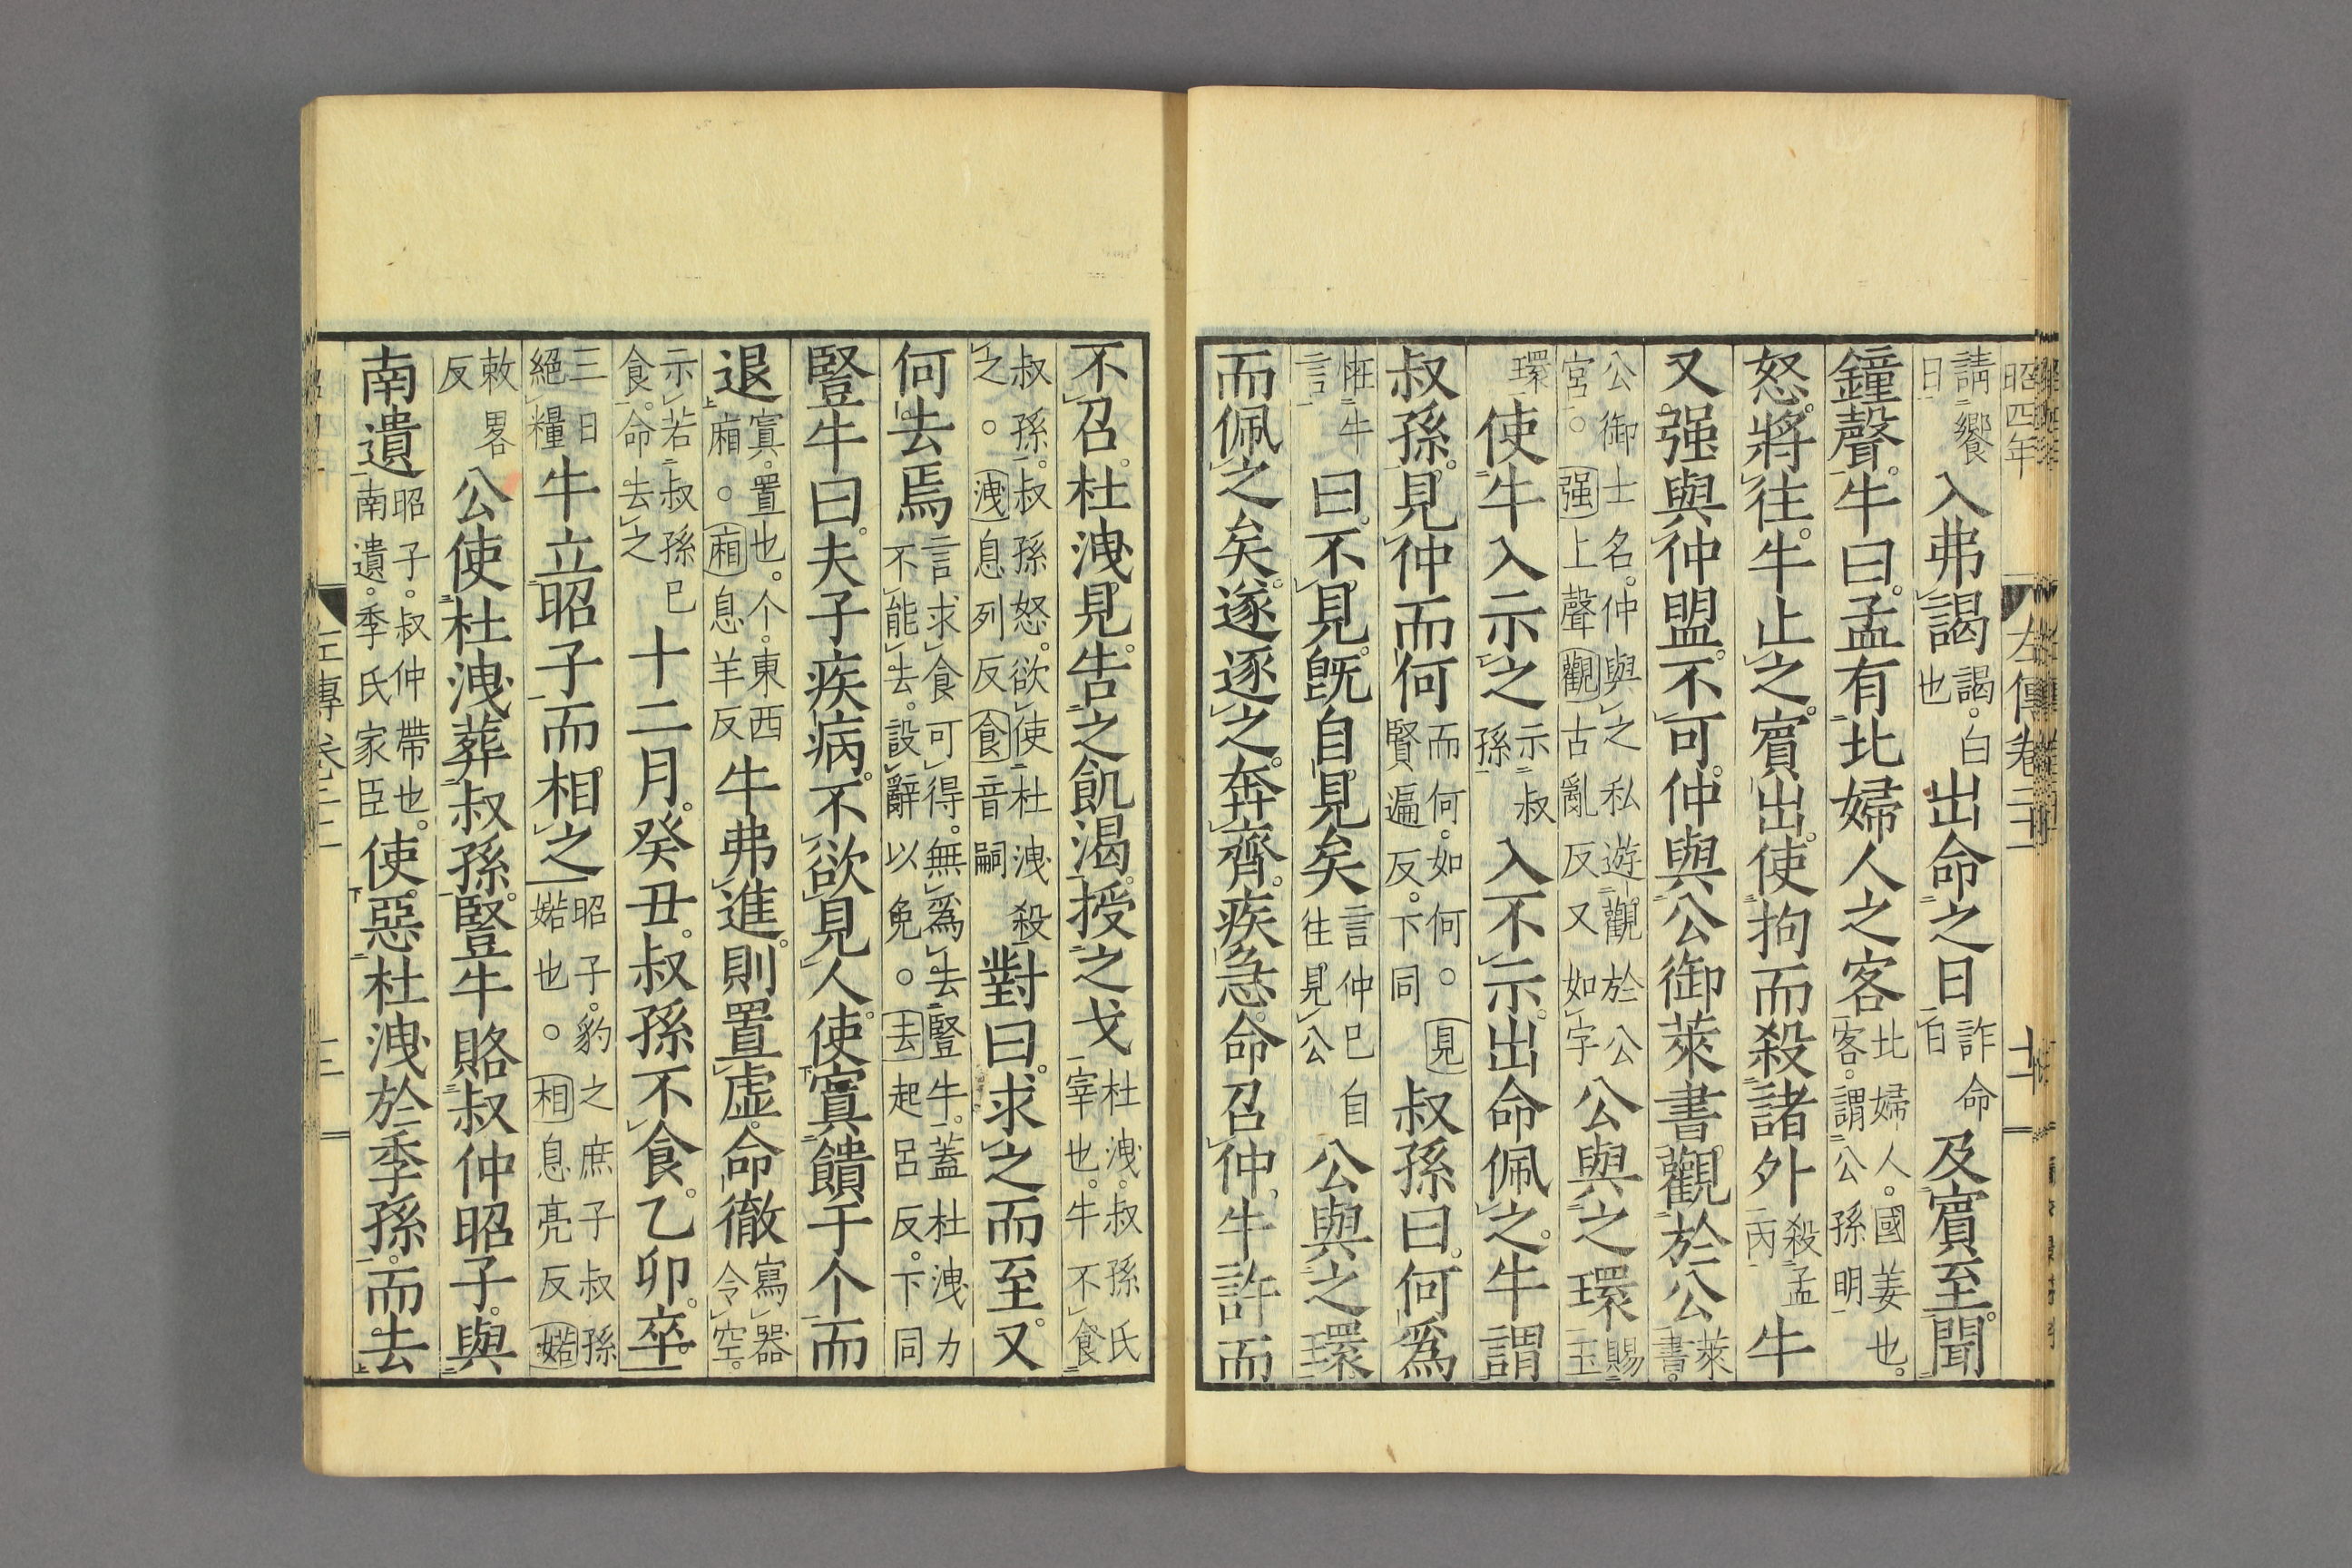 昭四年
左傳卷二十一
十一
請饗日入弗謁謁白也出命之日詐命日及賓至聞
鐘聲牛曰孟有北婦人之客北婦人國姜也客謂公孫明
怒將往牛止之賓出使拘而殺諸外殺孟丙牛
又强與仲盟不可仲與公御萊書觀於公萊書
公御士名仲與之私遊觀於公宮○强上聲觀古亂反又如字公與之環賜玉
環使牛入示之示叔孫入不示出命佩之牛謂
叔孫見仲而何而何如何○見賢遍反下同叔孫曰何爲
牛曰不見既自見矣言仲已自往見公公與之環
而佩之矣遂逐之奔齊疾急命召仲牛許而
不召杜洩見告之飢渴授之戈杜洩叔孫氏宰也牛不食
叔孫叔孫怒欲使杜洩殺之○洩息列反食音嗣對曰求之而至又
何去焉言求食可得無爲去豎牛蓋杜洩力不能去設辭以免○去起呂反下同
豎牛曰夫子疾病不欲見人使寘饋于个而
退寘置也个東西廂○廂息羊反牛弗進則置虛命徹寫器令空
示若叔孫已食命去之十二月癸丑叔孫不食乙卯卒
三日絕糧牛立昭子而相之昭子豹之庶子叔孫婼也○相息亮反婼
敕畧反公使杜洩葬叔孫豎牛賂叔仲昭子與
南遺昭子叔仲帶也南遺季氏家臣使惡杜洩於季孫而去